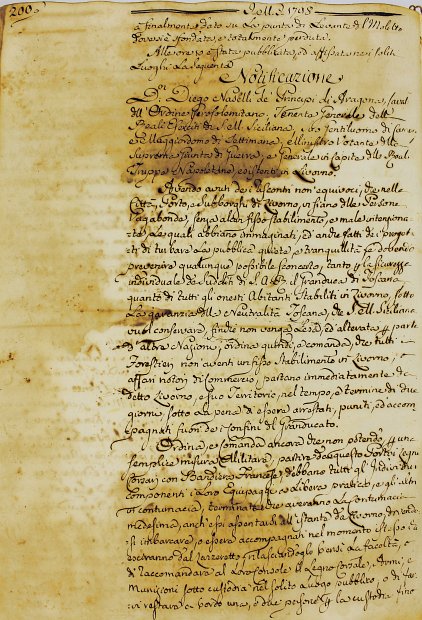 200
1798
è finalmente dato su la punta di Levante di Moletto
dove si è sfondata, e totalmente perduta.
Alle ore è stata pubblicata, ed affissa nei soliti
Luoghi la seguente
Notificazione
Dn. Diego Naselli de' Principi di Aragona, Caval
dell'Ordine Gerosolomitano, Tenente Generale delli
Reali Eserciti di S. M. Siciliana, suo Gentiluomo di Camera
e Maggiordomo di Settimana, e Membro Votante della
Suprema Giunta di Guerra, e Generale in Capite delle Reali
Truppe Napoletane, esistenti in Livorno.
Avendo avuti dei riscontri non equivoci, che nella
Città, Porto, e Subborghi di Livorno, vi siano delle Persone
vagabonde, senza alcun fisso stabilimento, e male intenzio
nate, le quali abbiano immaginati, ed anche fatti dei proget
ti di turbare la pubblica quiete, e tranquillità, e dovendo
prevenire qualunque possibile sconcerto, tanto per la sicurezza
individuale de Sudditi di S. A. R. il Granduca di Toscana
quanto di tutti gli onesti Abitanti stabiliti in Livorno, sotto
la garanzia della Neutralità Toscana, che S. M. Siciliana
vuol conservare, finchè non venga lesa, ed alterata per parte
d'altre Nazioni, ordina quindi, e comanda, che tutti i
Forestieri non aventi un fisso stabilimento in Livorno, o
affari notori di Commercio, partano immediatamente da
detto Livorno, e suo Territorio, nel tempo, e termine di due
giorni, sotto la pena di essere arrestati, puniti, ed accom
pagnati fuori dei confini del Granducato.
Ordina, e comanda ancora che non potendo, per una
semplice misura Militare, partire da questo Porto i Legni
Corsari con Bandiera Francese, debbano tutti gli Individui
componenti i loro Equipaggi a libera pratica, e gli altri
in contumacia, terminata che averanno la contumacia
medesima, anch'essi assentarsi dall'istante da Livorno, dovendo
si imbarcare, o essere accompagnati nel momento stesso che
sortiranno dal Lazzeretto, rilasciandogli pensi la facoltà,
di raccomandare al loro Console il Legno Corsale, Armi, e
Munizioni sotto custodia nel solito Luogo pubblico, o di far
ci restare a bordo una, o due persone per la custodia fino